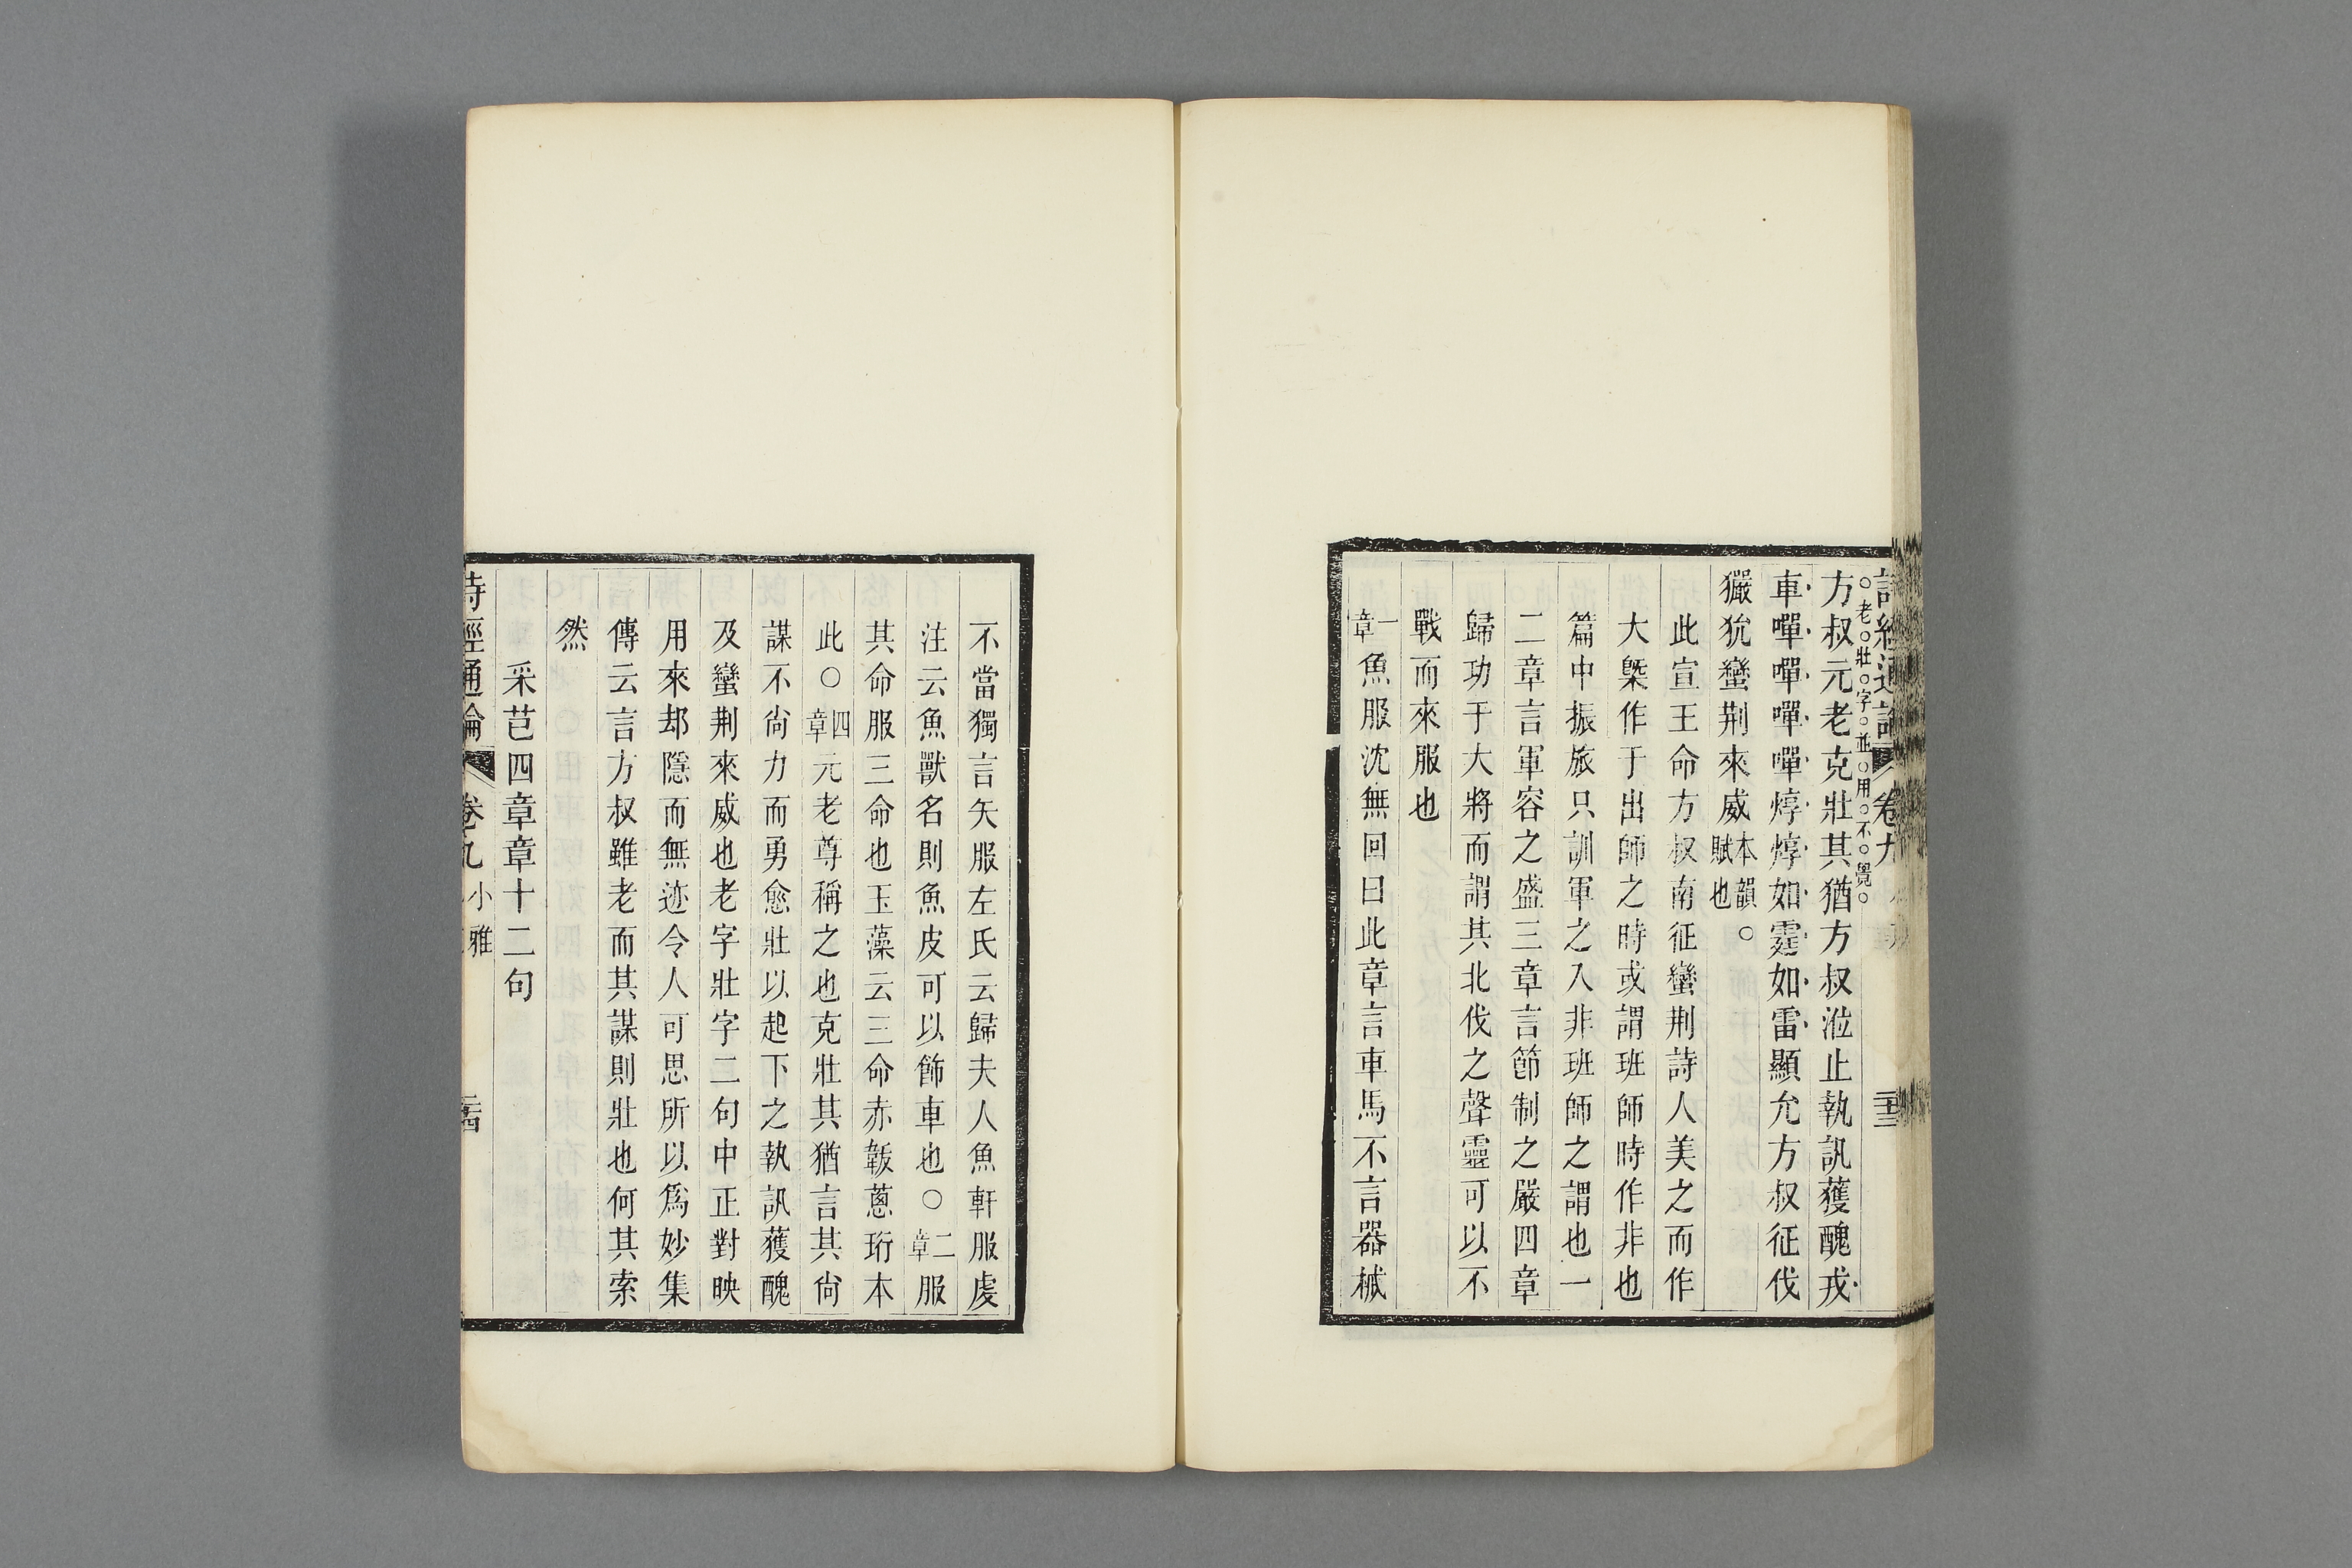 詩經通論 卷九
二十三
方叔元老克壯其猶方叔涖止執訊獲醜戎
老壯字並用不覺
車嘽嘽嘽嘽焞焞如霆如雷顯允方叔征伐
玁狁蠻荆來威本韻○賦也
此宣王命方叔南征蠻荆詩人美之而作
大槩作于出師之時或謂班師時作非也
篇中振旅只訓軍之入非班師之謂也一
二章言軍容之盛三章言節制之嚴四章
歸功于大將而謂其北伐之聲靈可以不
戰而來服也
一章魚服沈無回曰此章言車馬不言器械
不當獨言矢服左氏云歸夫人魚軒服虔
注云魚獸名則魚皮可以飾車也○二章服
其命服三命也玉藻云三命赤韍蔥珩本
此○四章元老尊稱之也克壯其猶言其尙
謀不尙力而勇愈壯以起下之執訊獲醜
及蠻荆來威也老字壯字二句中正對映
用來却隱而無迹令人可思所以爲妙集
傳云言方叔雖老而其謀則壯也何其索
然
采芑四章章十二句
詩經通論 卷九 小雅
二十四